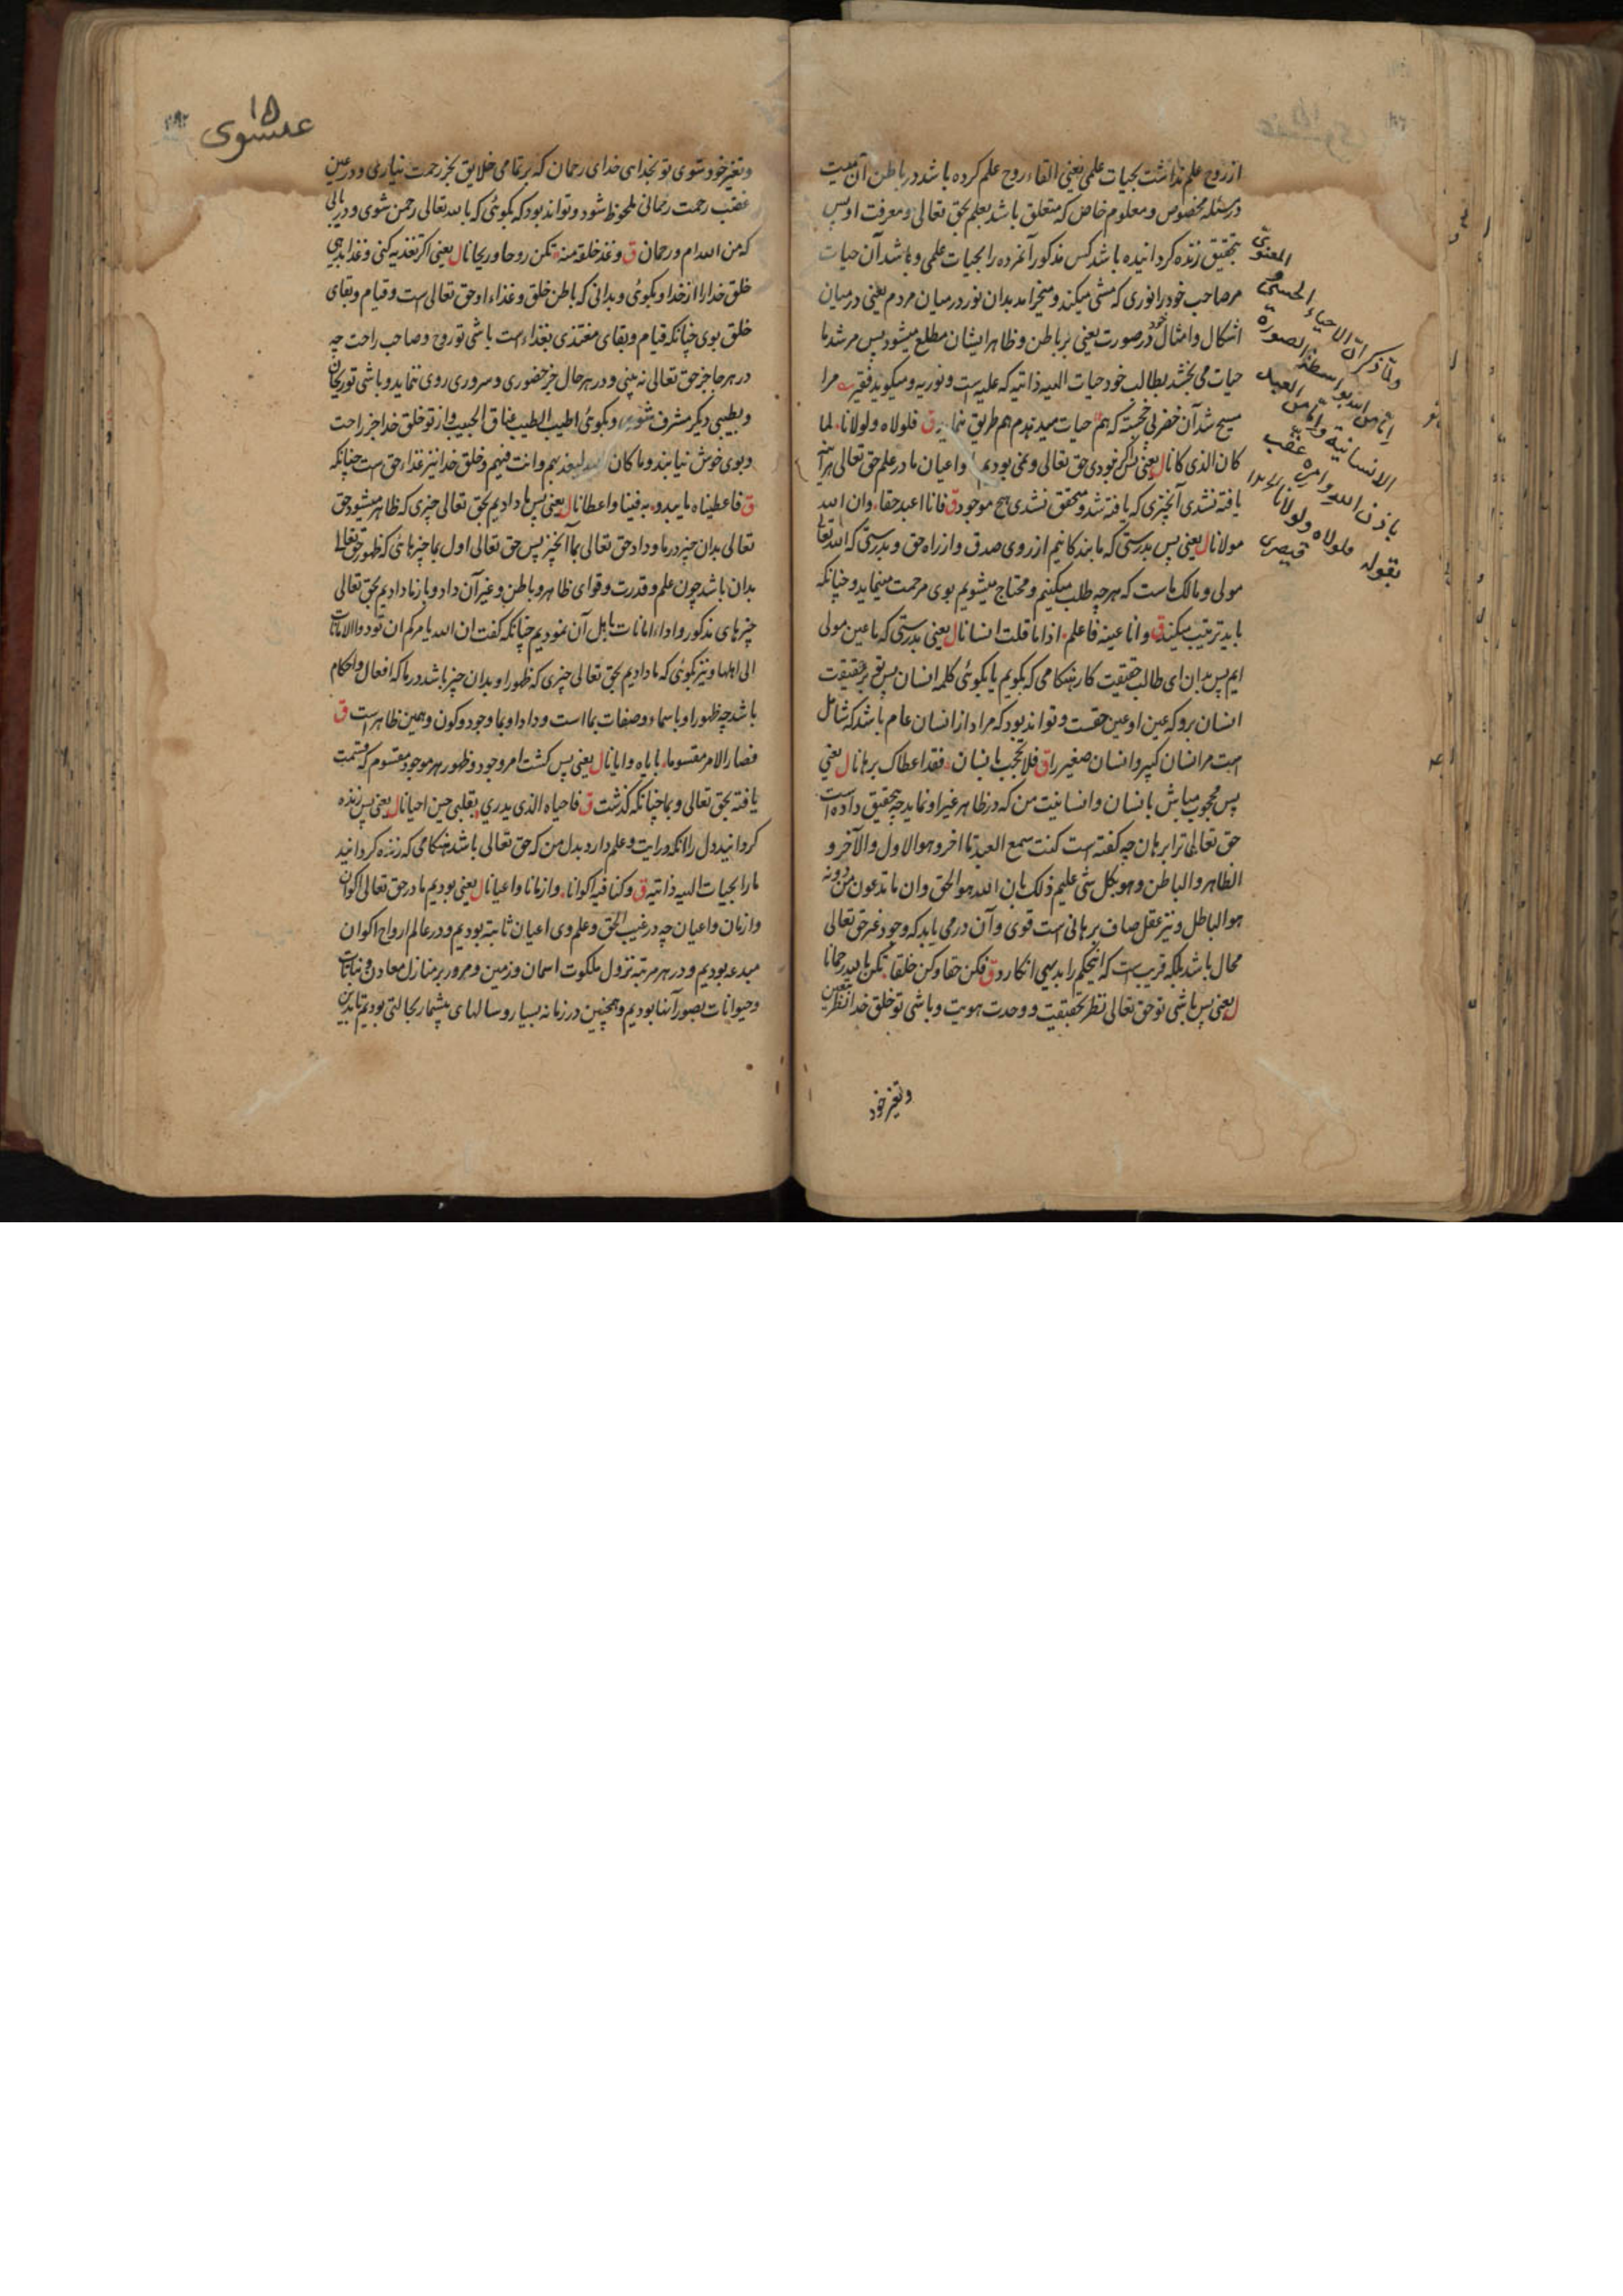 از روح علم نداشت بحیات علمی یعنی القاء روح علم کرده باشد در باطن آن میت
در مسئله مخصوص و معلوم خاص که متعلق باشد بعلم بحق تعالی و معرفت او پس
بتحقیق زنده کردانیده باشد کس مذکور آنمرده را بحیات علمی و باشد آن حیات
مر صاحب خود را نوری که مشی میکند و میخرامد بدان نور در میان مردم یعنی در میان
اشکال و امثال خود در صورت یعنی بر باطن و ظاهر ایشان مطلع میشود پس مرشد ما
حیات می بخشد بطالب خود حیات الهیه ذاتیه که علیه است و نوریه و میکوید فقیر مرا
مسیح شد آن خضر پی خجسته که هم حیات میدهدم هم طریق نماید ق فلولاه و لولانا لما
کان الذی کانا ل یعنی پس اکر نبودی حق تعالی و نمی بودیم ما و اعیان ما در علم حق تعالی هر آینه
یافته نشدی آنچیزی که یافته شد و متحقق نشدی هیچ موجود ق فانا اعبد حقا و ان الله
مولانا ل یعنی پس بدرستی که ما بندکانیم از روی صدق و از راه حق و بدرستی که الله تعالی
مولی و مالک ماست که هر چه طلب میکنیم و محتاج میشویم بوی مرحمت مینماید و چنانکه
باید ترتیب میکند ق و انا عینه فاعلم اذا ما قلت انسانا ل یعنی بدرستی که ما عین مولی
ایم پس بدان ای طالب حقیقت کار هنکامی که بکویم یا بکوئی کلمه انسان پس تو بر حقیقت
انسان برو که عین او عین حقست و تواند بود که مراد از انسان عام باشد که شامل
است مر انسان کبیر و انسان صغیر را ق فلا تحجب بانسان فقد اعطاک برهانا ل یعنی
پس محجوب مباش بانسان و انسانیت من که در ظاهر غیر او نماید چه بتحقیق داده است
حق تعالی ترا برهان چه کفته است کنت سمع العبد تا آخر و هو الاول و الآخر و
الظاهر و الباطن و هو بکل شی علیم ذلک بان الله هو الحق و ان ما تدعون من دونه
هو الباطل و نیز عقل صاف برهانی است قوی و آن درمی یابد که وجود غیر حق تعالی
محال باشد بلکه قریب است که اینحکم را بدیهی انکارد ق فکن حقا و کن خلقا تکن بالله رحمانا
ل یعنی پس باشی تو حق تعالی نظر بحقیقت و وحدت هویت و باشی تو خلق خدا نظر بتعین
و تعین خود
المعنوی
ولما ذکر ان الاحیاء الحسی و
اما من الله بواسطة الصورة
الانسانیة و اما من العبد
باذن الله و امره عقب
بقوله فلولاه و لولانا الخ
قیصری
۱۵
عیسوی
و تعین خود شوی تو بخدا ای خدای رحمان که بر تمامی خلایق بجز رحمت نیاری و در عین
غضب رحمت رحمانی ملحوظ شود و تواند بود که بکوئی که بالله تعالی رحمن شوی و دریابی
که من الله ام و رحمان ق و غذ خلقه منه تکن روحا و ریحانا ل یعنی اکر تغذیه کنی و غذا بدهی
خلق خدا را از خدا و بکوئی و بدانی که باطن خلق و غذاء او حق تعالی است و قیام و بقای
خلق بوی چنانکه قیام و بقای مغتذی بغذاء است باشی تو روح و صاحب راحت چه
در هر جا جز حق تعالی نه بینی و در هر حال جز حضوری و سروری روی ننماید و باشی تو ریحان
و بطیبی دیکر مشرف شوی و بکوئی اطیب الطیب عناق الحبیب و از تو خلق خدا جز راحت
و بوی خوش نیابند و ما کان الله لیعذبهم و انت فیهم و خلق خدا نیز غذاء حق است چنانکه
ق فاعطیناه ما یبدو به فینا و اعطانا ل یعنی پس ما دادیم بحق تعالی چیزی که ظاهر میشود حق
تعالی بدان چیز در ما و داد حق تعالی بما آنچیز پس حق تعالی اول بما چیزهائی که ظهور حق تعالی
بدان باشد چون علم و قدرت و قوای ظاهر و باطن و غیر آن داد و باز ما دادیم بحق تعالی
چیزهای مذکور و اداء امانات باهل آن نمودیم چنانکه کفت ان الله یامرکم ان تودوا الامانات
الی اهلها و نیز بکوئی که ما دادیم بحق تعالی چیزی که ظهور او بدان چیز باشد در ما که افعال و احکام
باشد چه ظهور او باسماء و صفات بما است و داد او بما وجود و کون و همین ظاهر است ق
فصار الامر مقسوما بایاه و ایانا ل یعنی پس کشت امر وجود و ظهور هر موجود مقسوم که قسمت
یافته بحق تعالی و بما چنانکه کذشت ق فاحیاه الذی یدری بقلبی حین احیانا ل یعنی پس زنده
کردانید دل را آنکه درایت و علم دارد بدل من که حق تعالی باشد هنکامی که زنده کردانید
ما را بحیات الهیه ذاتیه ق و کنا فیه اکوانا و ازمانا و اعیانا ل یعنی بودیم ما در حق تعالی اکوان
و ازمان و اعیان چه در غیب الحق و علم وی اعیان ثابته بودیم و در عالم ارواح اکوان
مبدعه بودیم و در هر مرتبه نزول ملکوت اسمان و زمین و مرور بر منازل معادن و نباتات
و حیوانات بصور آنها بودیم و همچنین در زمانه بسیار و سالهای بیشمار بحالتی بودیم تا بدین